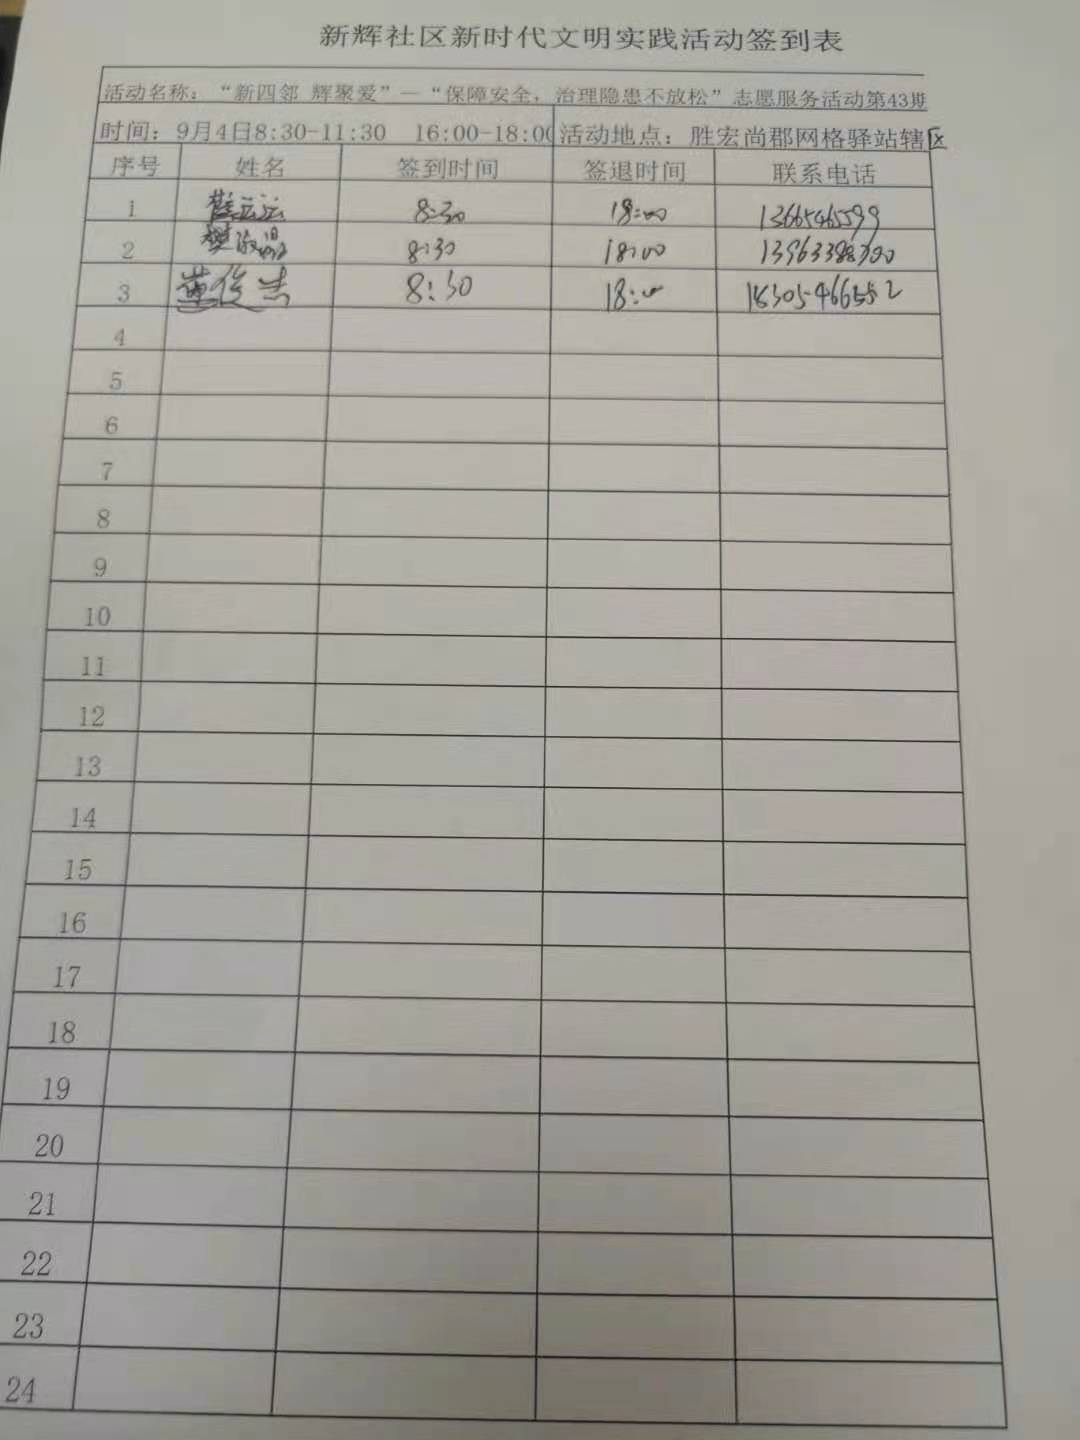 新辉社区新时代文明实践活动签到表
活动名称：“新四邻 辉聚爱”—“保障安全，治理隐患不放松”志愿服务活动第43期
时间：9月4日8:30-11:30 16:00-18:00 活动地点：胜宏尚郡网格驿站辖区
序号 姓名 签到时间 签退时间 联系电话
1 8:30 18:00 13665465599
2 樊淑晶 8:30 18:00
3 董俊杰 8:30 18:00 18305466552
4
5
6
7
8
9
10
11
12
13
14
15
16
17
18
19
20
21
22
23
24